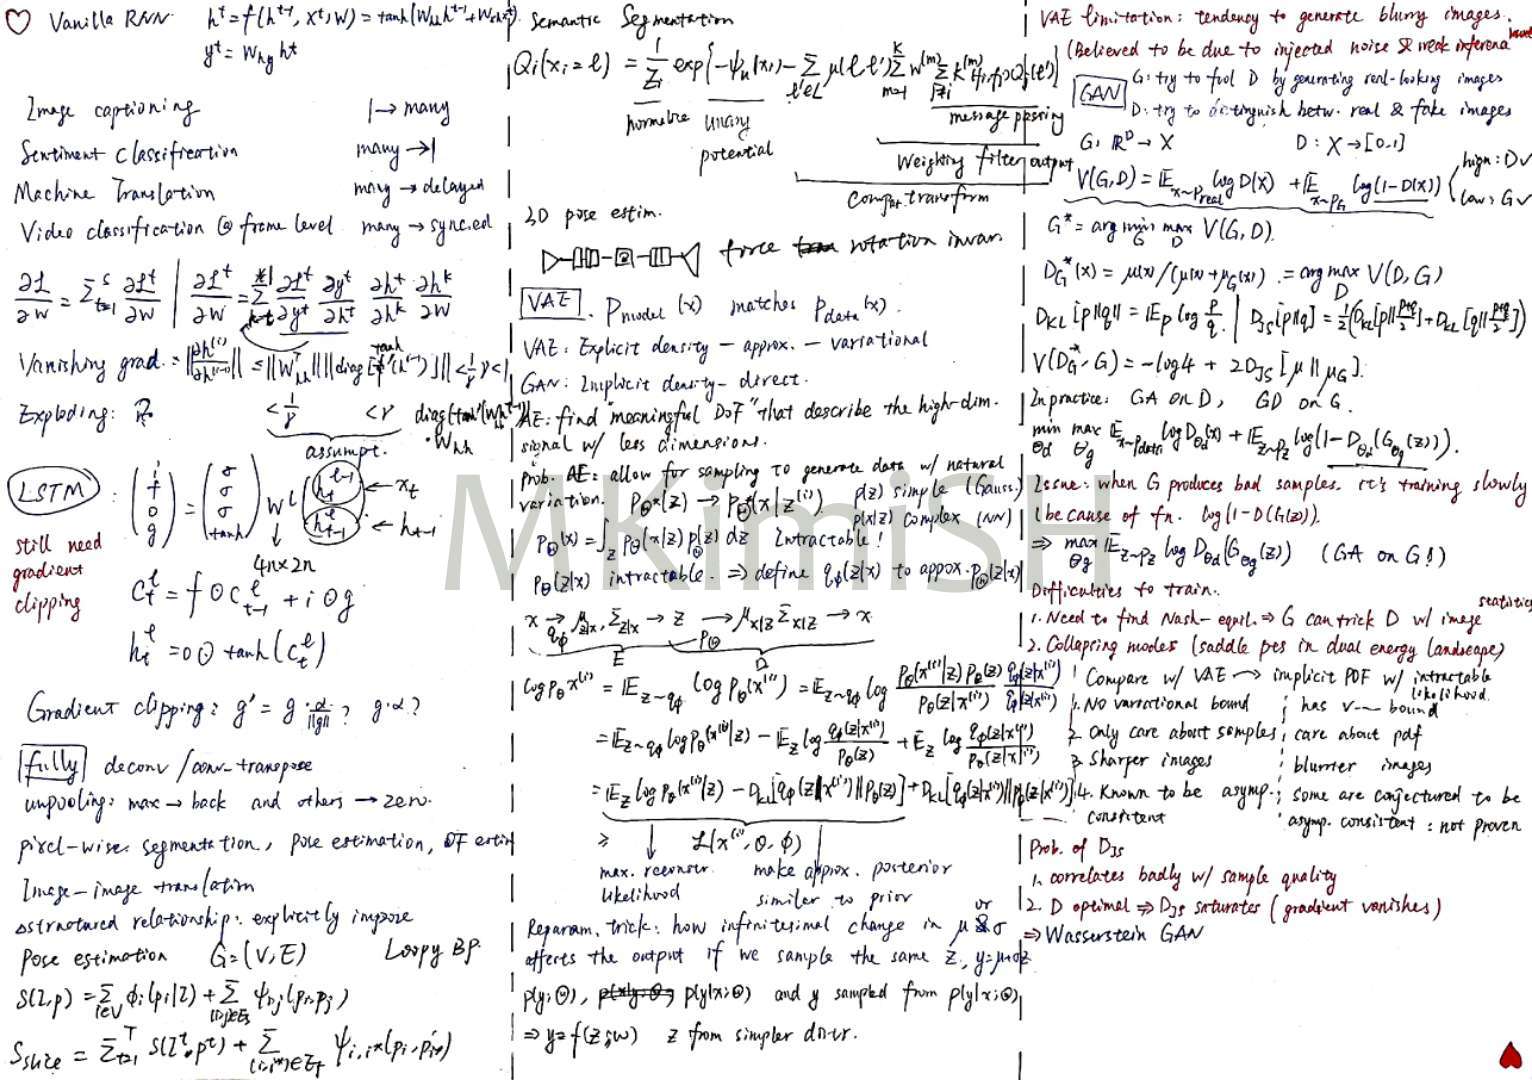 Vanilla RNN h^t = f(h^{t-1}, x^t; W) = tanh(W_hh h^{t-1} + W_xh x^t)
y^t = W_hy h^t
Image captioning 1 → many
Sentiment classification many → 1
Machine Translation many → delayed
Video classification @ frame level many → synced
∂L/∂W = Σ_{t=1}^S ∂L^t/∂W | ∂L^t/∂W = Σ ∂L^t/∂y^t ∂y^t/∂h^t ∂h^t/∂h^k ∂h^k/∂W
Vanishing grad. = ||∂h^(i)/∂h^(i-1)|| ≤ ||W_hh^T|| ||diag[tanh'(h^(i-1))]|| < 1/γ γ < 1
Exploding: < 1/γ < γ diag(tanh'(W_hh h^{t-1})) · W_hh
assumpt.
LSTM : (i f o g) = (σ σ σ tanh) W^l (h_t^{l-1} h_{t-1}^l) ← x_t ← h_{t-1}
4n × 2n
still need
gradient
clipping
c_t^l = f ⊙ c_{t-1}^l + i ⊙ g
h_t^l = o ⊙ tanh(c_t^l)
Gradient clipping: g' = g · α/||g|| ? g·α ?
fully deconv / conv-transpose
unpooling: max → back and others → zero.
pixel-wise: segmentation, pose estimation, OF estim
Image-image translation
structured relationship: explicitly impose
Pose estimation G = (V, E) Loopy BP.
S(I,p) = Σ_{i∈V} φ_i(p_i|I) + Σ_{(i,j)∈E_s} ψ_{i,j}(p_i, p_j)
S_slice = Σ_{t=1}^T S(I^t, p^t) + Σ_{(i,i*)∈E_T} ψ_{i,i*}(p_i, p_{i*})
Semantic Segmentation
Q_i(x_i = l) = 1/Z_i exp{-ψ_u(x_i) - Σ_{l'∈L} μ(l, l') Σ_{m=1}^K w^(m) Σ_{j≠i} k^(m)(f_i, f_j) Q_j(l')}
unary potential
message passing
Weighting filter output
Compat. transform
3D pose estim.
force rotation invar.
VAE. P_model(x) matches P_data(x).
VAE: Explicit density - approx. - variational
GAN: Implicit density - direct.
AE: find "meaningful DoF" that describe the high-dim.
signal w/ less dimensions.
prob. AE: allow for sampling to generate data w/ natural
variation. P_θ*(z) → P_θ*(x|z^(i)) p(z) simple (Gauss.)
p(x|z) complex (NN)
P_θ(x) = ∫_z P_θ(x|z) P_θ(z) dz Intractable!
P_θ(z|x) intractable. ⇒ define q_φ(z|x) to approx. P_θ(z|x)
x → μ_{z|x}, Σ_{z|x} → z → μ_{x|z} Σ_{x|z} → x
q_φ P_θ
E D
log P_θ x^(i) = E_{z~q_φ} log P_θ(x^(i)) = E_{z~q_φ} log P_θ(x^(i)|z) P_θ(z) / P_θ(z|x^(i)) q_φ(z|x^(i)) / q_φ(z|x^(i))
= E_{z~q_φ} log P_θ(x^(i)|z) - E_z log q_φ(z|x^(i)) / P_θ(z) + E_z log q_φ(z|x^(i)) / P_θ(z|x^(i))
= E_z log P_θ(x^(i)|z) - D_KL[q_φ(z|x^(i)) || P_θ(z)] + D_KL[q_φ(z|x^(i)) || P_θ(z|x^(i))]
≥ L(x^(i), θ, φ)
max. reconstr. make approx. posterior
likelihood similar to prior
Reparam. trick: how infinitesimal change in μ or σ
affects the output if we sample the same z, y = μ+σz
p(y;θ), p(y|x;θ) and y sampled from p(y|x;θ)
⇒ y = f(z;w) z from simpler distr.
VAE limitation: tendency to generate blurry images.
(Believed to be due to injected noise & weak inference
GAN G: try to fool D by generating real-looking images
D: try to distinguish betw. real & fake images
G: R^D → X D: X → [0,1]
V(G,D) = E_{x~P_real} log D(x) + E_{x~P_G} log(1-D(x)) high: D✓ low: G✓
G* = arg min_G max_D V(G,D).
D_G*(x) = μ(x)/(μ(x)+μ_G(x)) := arg max_D V(D,G)
D_KL[p||q] = E_p log p/q | D_JS[p||q] = 1/2(D_KL[p||(p+q)/2] + D_KL[q||(p+q)/2])
V(D_G*, G) = -log4 + 2D_JS[μ||μ_G].
In practice: GA on D, GD on G.
min_θd max_θg E_{x~Pdata} log D_θd(x) + E_{z~Pz} log(1-D_θd(G_θg(z))).
Issue: when G produces bad samples, it's training slowly
(because of fn. log(1-D(G(z))).
⇒ max_θg E_{z~Pz} log D_θd(G_θg(z)) (GA on G!)
Difficulties to train.
1. Need to find Nash-equil. ⇒ G can trick D w/ image statistics
2. Collapsing modes (saddle pts in dual energy landscape)
Compare w/ VAE → implicit PDF w/ intractable likelihood.
1. No variational bound ; has v— bound
2. Only care about samples ; care about pdf
3. Sharper images ; blurrier images
4. Known to be asymp. consistent ; some are conjectured to be
asymp. consistent : not proven
Prob. of D_JS
1. correlates badly w/ sample quality
2. D optimal ⇒ D_JS saturates (gradient vanishes)
⇒ Wasserstein GAN
MKimiSH